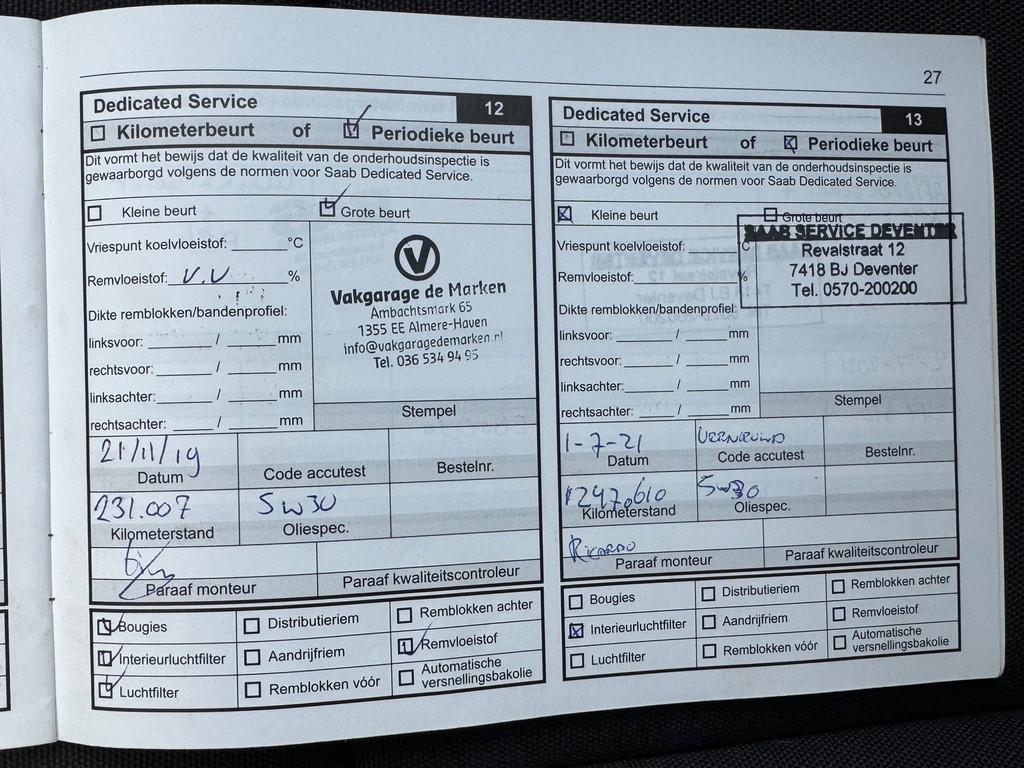 27
Dedicated Service 12
Kilometerbeurt of Periodieke beurt
Dit vormt het bewijs dat de kwaliteit van de onderhoudsinspectie is
gewaarborgd volgens de normen voor Saab Dedicated Service.
Kleine beurt Grote beurt
Vriespunt koelvloeistof: °C
Remvloeistof: V.V %
Dikte remblokken/bandenprofiel:
linksvoor: / mm
rechtsvoor: / mm
linksachter: / mm
rechtsachter: / mm
V
Vakgarage de Marken
Ambachtsmark 65
1355 EE Almere-Haven
info@vakgaragedemarken.nl
Tel. 036 534 94 95
Stempel
21/11/19
Datum Code accutest Bestelnr.
231.007 5W30
Kilometerstand Oliespec.
Paraaf monteur Paraaf kwaliteitscontroleur
Bougies Distributieriem Remblokken achter
Interieurluchtfilter Aandrijfriem Remvloeistof
Luchtfilter Remblokken vóór Automatische
versnellingsbakolie
Dedicated Service 13
Kilometerbeurt of Periodieke beurt
Dit vormt het bewijs dat de kwaliteit van de onderhoudsinspectie is
gewaarborgd volgens de normen voor Saab Dedicated Service.
Kleine beurt Grote beurt
Vriespunt koelvloeistof: °C
Remvloeistof: %
Dikte remblokken/bandenprofiel:
linksvoor: / mm
rechtsvoor: / mm
linksachter: / mm
rechtsachter: / mm
SAAB SERVICE DEVENTER
Revalstraat 12
7418 BJ Deventer
Tel. 0570-200200
Stempel
1-7-21
Datum Code accutest Bestelnr.
247.610 5W30
Kilometerstand Oliespec.
Ricardo
Paraaf monteur Paraaf kwaliteitscontroleur
Bougies Distributieriem Remblokken achter
Interieurluchtfilter Aandrijfriem Remvloeistof
Luchtfilter Remblokken vóór Automatische
versnellingsbakolie